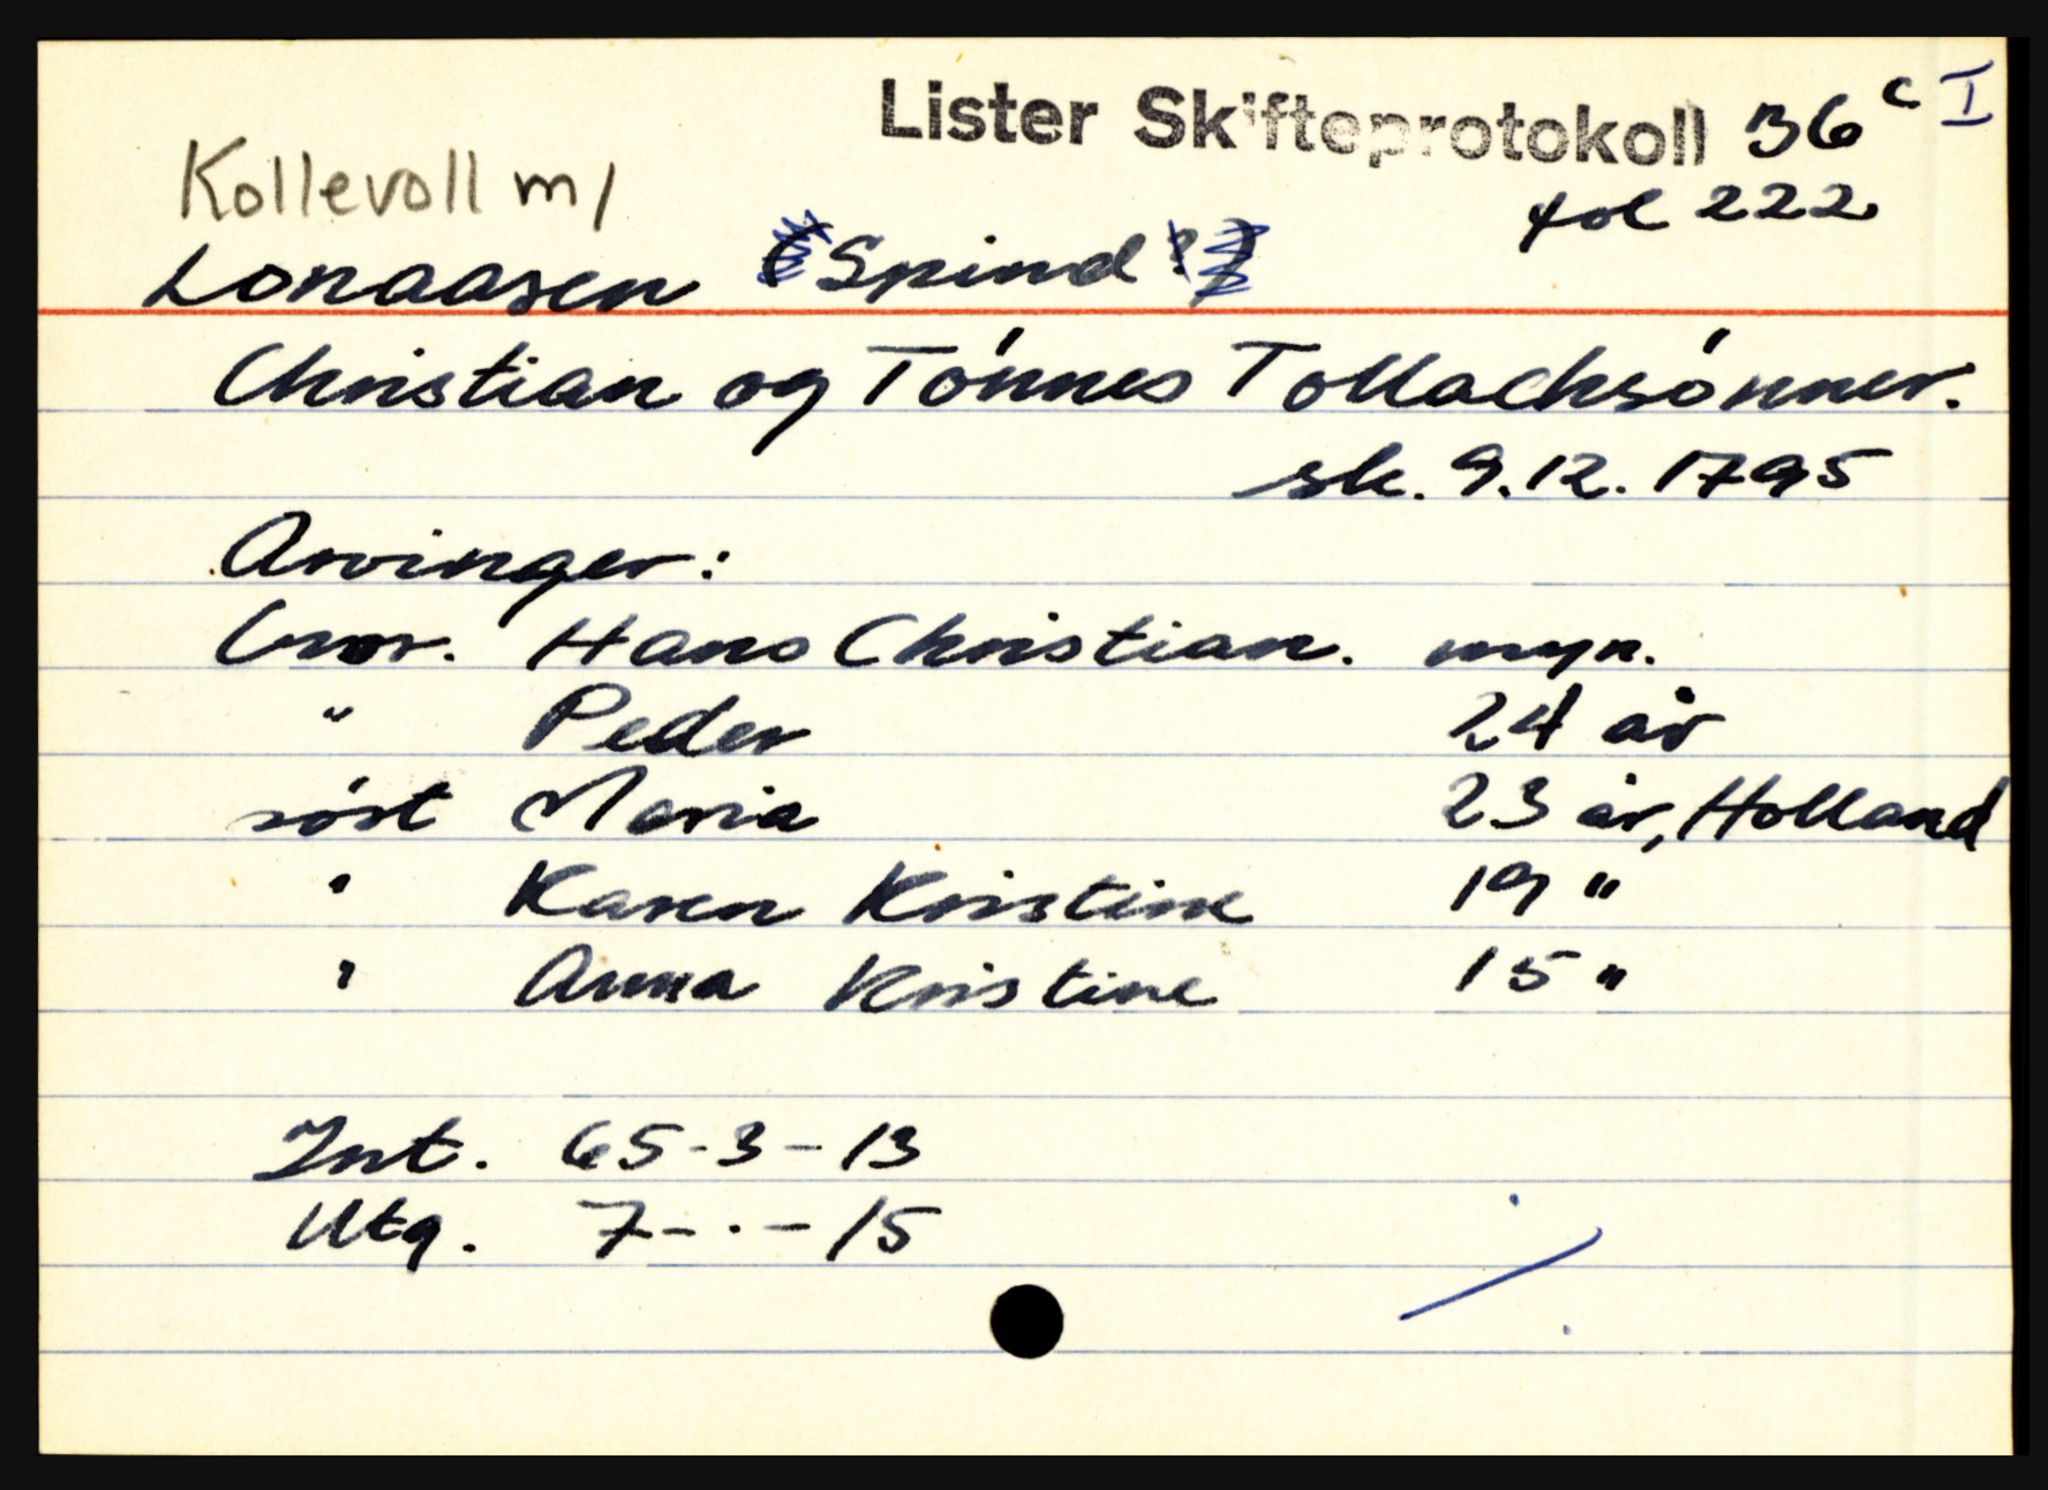 Lister Skifteprotokoll 36 c I
fol 222
Kollevoll m/
Lonaasen (Spind?)
Christian og Tónnes Tollachsónner.
sk. 9.12.1795
Arvinger:
bror. Hans Christian. myn.
" Peder 24 år
sóst Maria 23 år, Holland
" Karen Kristine 19 "
" Anna Kristine 15 "
Int. 65-3-13
Utg. 7-·-15